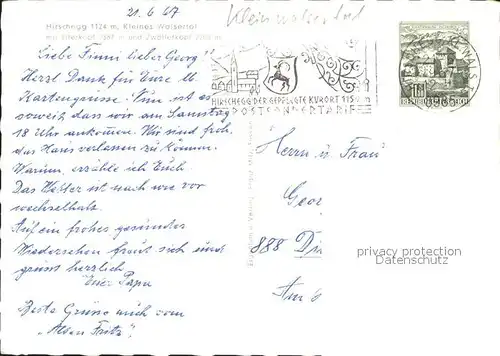 21.6.67
Kleinwalsertal
Hirschegg 1124 m, Kleines Walsertal
mit Elferkopf 2387 m und Zwölferkopf
Liebe Finni lieber Georg!
Herzl. Dank für Eure lb
Kartengrüsse. Nun ist es
soweit dass wir am Samstag
18 Uhr ankommen. Wir sind froh,
das Haus verlassen zu können.
Warum, erzähle ich Euch.
Das Wetter ist nach wie vor
wechselhaft.
Auf ein frohes gesundes
Wiedersehen freut sich und
grüsst herzlich
Euer Papa
Beste Grüsse auch vom
„Alten Fritz".
HIRSCHEGG DER GEPFLEGTE KURORT 1150 m
POSTEIGNERTARIF
Herrn u. Frau
Geor
888 Di
privacy protection
Datenschutz